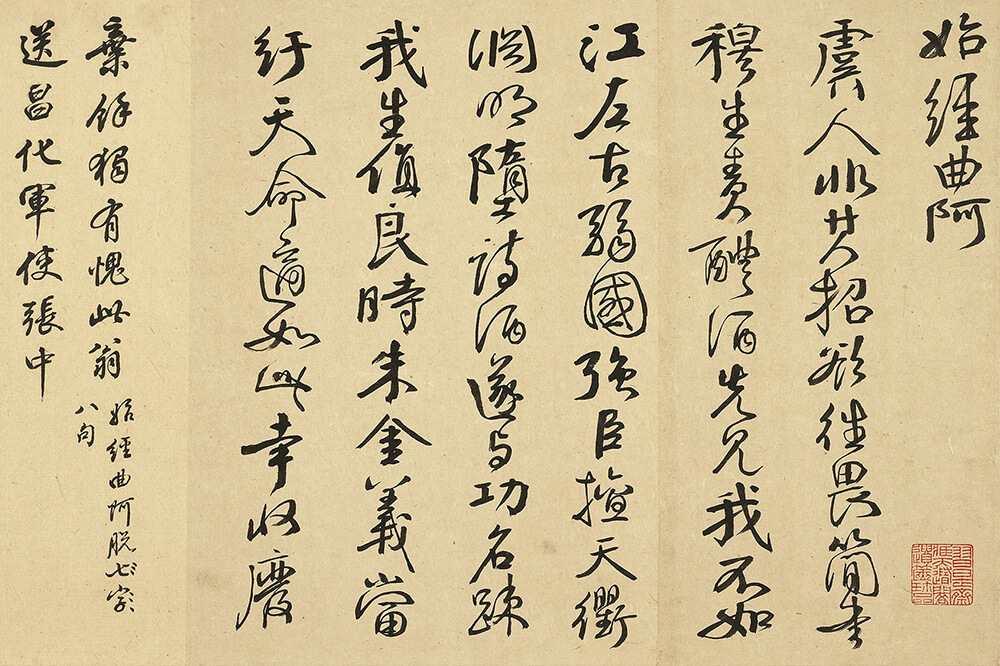 始經曲阿
虞人非其招欲往畏簡書
穆生責醴酒先見我不如
江左古弱國強臣擅天衢
淵明墮詩酒遂與功名疎
我生值良時朱金義當
紆天命適如此幸收廢
棄餘獨有愧此翁
始經曲阿脫七字
八句
送昌化軍使張中